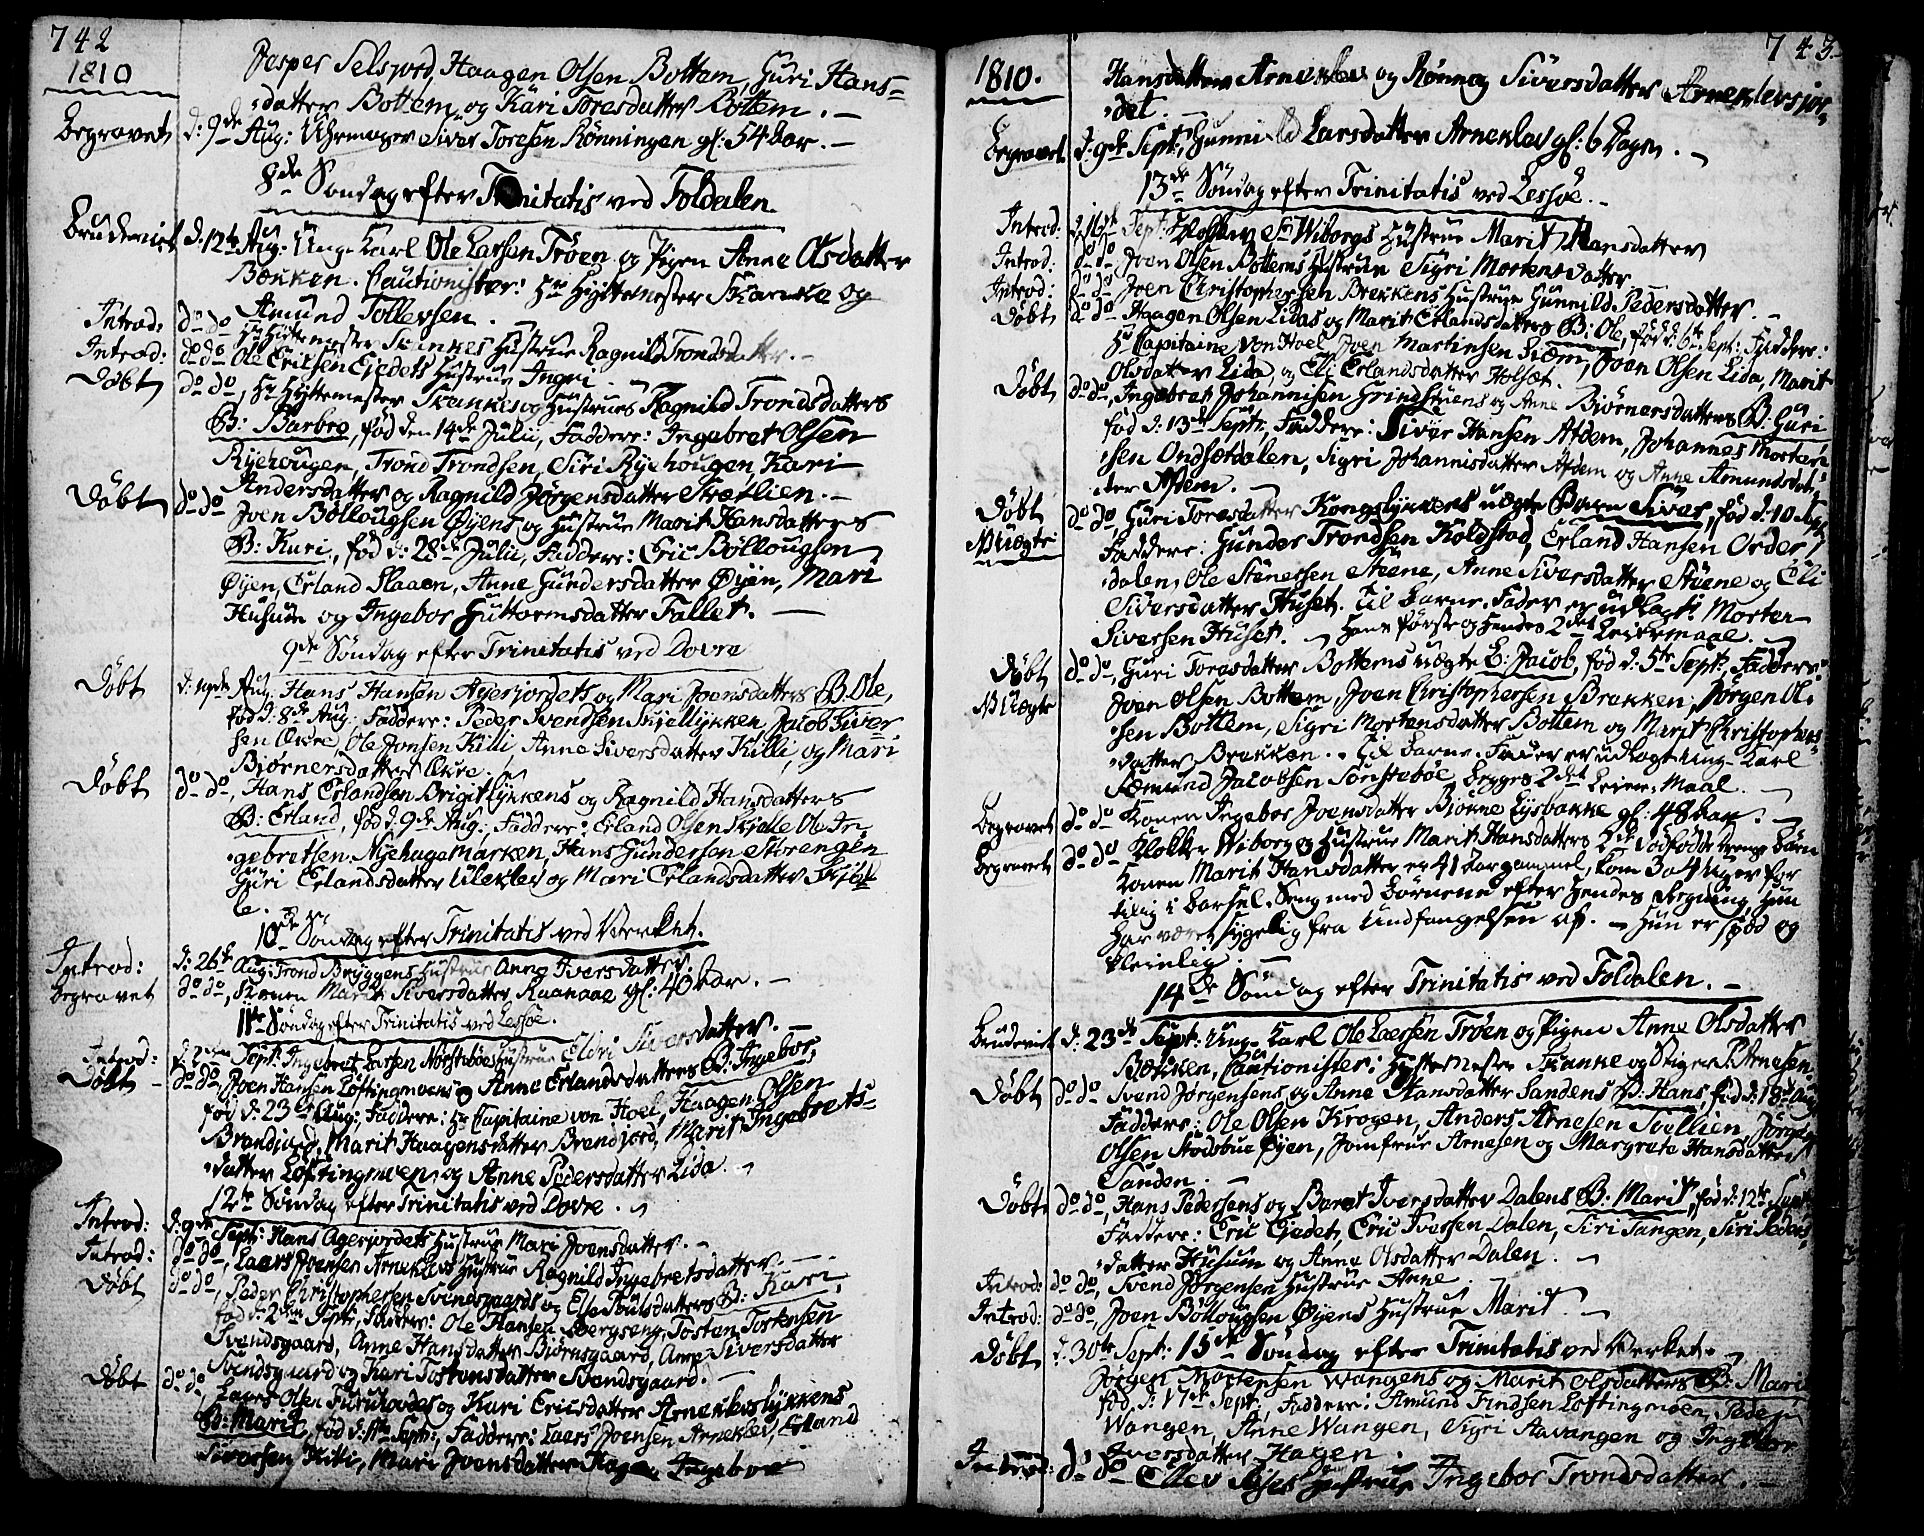 742
1810
Jesper Selsjord, Haagen Olsen Bottem, Guri Hans-
datter Bottem og Kari Toresdatter Bottem. -
Begravet d: 9de Aug: Uhrmager Siver Toresen Rønningen gl: 54 Aar. -
8de Søndag efter Trinitatis ved Foldalen.
Brudeviet d: 12te Aug: Ung-Karl Ole Larsen Trøen og Pigen Anne Olsdatter
Bækken. Cautionister: Hr Hyttemester Skanke og
Amund Tollevsen.
Introd: do do Hr Hyttemester Skankes Hustrue Ragnild Trondsdatter. -
Introd: do do Ole Ericsen Gjedets Hustrue Ingri. -
Døbt do do, Hr Hyttemester Skankes og Hustrues Ragnild Trondsdatters
B: Barbro, fød den 14de Julii, Faddere: Ingebret Olsen
Ryehougen, Trond Trondsen, Siri Ryehougen, Kari
Andersdatter og Ragnild Jørgensdatter Strætlien. -
Døbt do do Joen Bollougsen Øyens og Hustrue Marit Hansdatters
B: Kari, fød d: 28de Julii, Faddere: Eric Bøllougsen
Øyen, Erland Slaaen, Anne Gundersdatter Øyen, Mari
Husum og Ingebor Guttormsdatter Fallet. -
9de Søndag efter Trinitatis ved Dovre
Døbt d: 19de Aug. Hans Hansen Agerjordets og Mari Joensdatters B. Ole,
fød d: 8de Aug: Faddere: Peder Svendsen Skjellykken, Jacob Siver-
sen Ækre, Ole Jonsen Killi, Anne Siversdatter Killi, og Mari
Biørnersdatter Ækre. -
Døbt do do, Hans Erlandsen Brigitlykkens og Ragnild Hansdatters
B: Erland, fød d: 9de Aug: Faddere: Erland Olsen Skjelle Ole In-
gebretsen Nyehagemarken, Hans Gundersen Storengen
Guri Erlandsdatter Uleklev og Mari Erlandsdatter Skjel-
le.
10de Søndag efter Trinitatis ved Værket.
Introd: d: 26te Aug: Trond Bryggens Hustrue Anne Iversdatter
Begravet do do, Konen Marit Siversdatter Raanaae gl: 40 Aar. -
11te Søndag efter Trinitatis ved Lessøe.
Introd: d: 2den Sept: Ingebret Larsen Nørstebøes Hustrue Eldri Siversdatter. -
Døbt - do do, Joen Hansen Løftingmoens og Anne Erlandsdatters B: Ingebor,
fød d: 23de Aug: Faddere: Hr Capitaine von Hoel, Haagen Olsen
Brandjord, Marit Haagensdatter Brandjord, Marit Ingebrets-
datter Løftingmoen og Anne Pedersdatter Lida. -
12te Søndag efter Trinitatis ved Dovre. -
Introd: d: 9de Sept: Hans Agerjordets Hustrue Mari Joensdatter. -
Introd: do do, Laars Joensen Arneklevs Hustrue Ragnild Ingebretsdatter. -
Døbt do do, Peder Christophersen Svendsgaards og Else Poulsdatters B: Kari,
fød d: 2den Sept: Faddere: Ole Hansen Bergseng, Tosten Tostensen
Svendsgaard, Anne Hansdatter Biørnsgaard, Anne Siversdatter
Svendsgaard og Kari Tostensdatter Svendsgaard. -
Døbt do do Laars Olsen Furuhovdes og Kari Ericsdatter Arneklevslykkens
B: Marit, fød d: 1te Sept:, Faddere: Laars Joensen Arneklev, Erland
Siversen Hiti, Mari Joensdatter Hage, Ingebor
743
1810.
Hansdatter Arneklev og Rønnog Siversdatter Arneklevsjor-
det. -
Begravet d: 9de Sept: Gunnild Larsdatter Arneklev gl: 6 Dage. -
13de Søndag efter Trinitatis ved Lessøe. -
Introd: d: 16de Sept: Klokker Wiborgs Hustrue Marit Hansdatter
Introd: do do Joen Olsen Bottems Hustrue Sigri Mortensdatter
Introd: do do Joen Christophersen Brekkens Hustrue Gunnild Pedersdatter. -
Døbt do do Haagen Olsen Lidas og Marit Erlandsdatters B: Ole, fød d: 6te Sept: Faddere:
Hr Capitaine von Hoel Joen Martinsen Siem, Joen Olsen Lida, Marit
Olsdatter Lida, og Eli Erlandsdatter Holset.
Døbt do do, Ingebret Johannisen Grindstuens og Anne Biørnersdatters B. Guri
fød d: 13de Sept, Faddere: Siver Hansen Afdem, Johannes Morten-
sen Ondsætdalen, Sigri Johannisdatter Afdem og Anne Amundsdat-
ter Afdem. -
Døbt do do, Guri Toresdatter Kongslykkens uægte Barn Siver, fød d: 10 Sept
N: Uægte Faddere: Gunder Trondsen Koldstad, Erland Hansen Order-
dalen, Ole Stenersen Steene, Anne Siversdatter Steene og Eli
Siversdatter Huset. Til Barne-Fader er udlagt: Morten
Siversen Huset. - Hans første og hendes 2det Leiermaal. -
Døbt do do, Guri Toresdatter Bottems uægte B: Jacob, fød d: 5te Sept: Faddere:
N: Uægte Joen Olsen Bottem, Joen Christophersen Brekken, Jørgen Ol-
sen Bottem, Sigri Mortensdatter Bottem og Marit Christophers-
datter Brekken. - Til Barne-Fader er udlagt Ung-Karl
Sæmund Jacobsen Sønstebøe, begges 2det Leier-Maal. -
Begravet do do Konen Ingebor Joensdatter Biørne Lysbakke gl: 48 Aar. -
Begravet do do Klokker Wiborg og Hustrue Marit Hansdatters 2de dødfødde Drenge Børn
Konen Marit Hansdatter er 41 Aar gammel, kom 3 a 4 Uger for
tilig i Barsel-Seng med Børnene efter hendes Regning. Hun
har været sygelig fra Undfangelsen af. - Hun er spød og
kleinlig. -
14de Søndag efter Trinitatis ved Foldalen. -
Brudeviet d: 23de Sept: Ung-Karl Ole Larsen Trøen og Pigen Anne Olsdatter
Bækken, Cautionister: Hyttemester Skanke og Stiger P. Arnesen
Døbt do do Svend Jørgensens og Anne Hansdatter Sandens B: Hans, fød d: 18de Aug
Faddere: Ole Olsen Krogen, Anders Arnesen Tvellien, Jørgen
Olsen Stodsbue Øyen, Jomfrue Arnesen og Margrete Hansdatter
Sanden. -
Døbt do do, Hans Pedersens og Beret Iversdatter Dalens B: Marit, fød d: 12te Sept
Faddere: Eric Gjedet, Eric Iversen Dalen, Siri Tangen, Siri Peders-
datter Husum og Anne Olsdatter Dalen. -
Introd: do do, Svend Jørgensen Hustrue Anne. -
Introd: do do, Joen Bøllougsen Øyens Hustrue Marit. -
15de Søndag efter Trinitatis ved Værket. -
Døbt d: 30te Sept: Jørgen Mortensen Wangens og Marit Olsdatters B: Mari
fød d: 17de Sept: Faddere: Amund Findsen Løftingmoen, Peder
Wangen, Anne Wangen, Sigri Aavangen og Ingebor
Iversdatter Hagen.
Introd: do do Ellev Hustrue Ingebor Trondsdatter. -